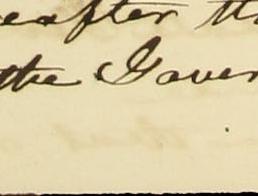 eafter th
the Gover